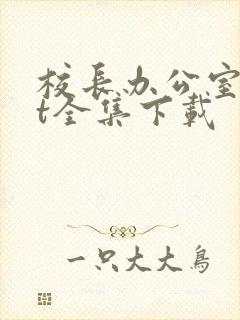 校长办公室
t全集下载
一只大大鸟